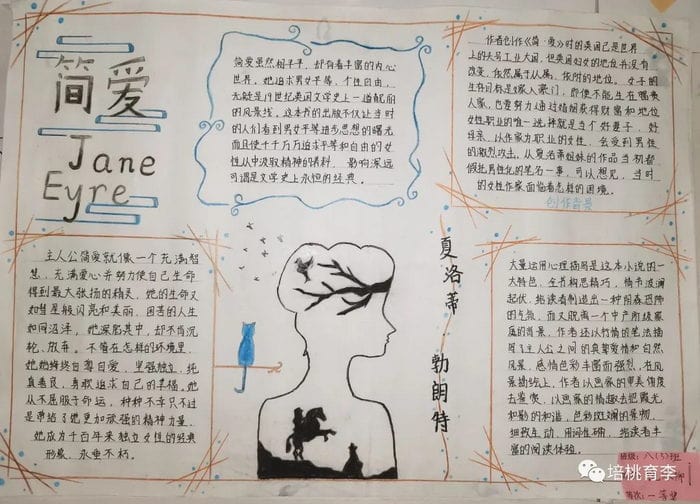 简爱
Jane
Eyre
简爱虽然相貌平平，却有着丰富的内心
世界。她追求男女平等，个性自由，
无疑是19世纪英国文学史上一道靓丽
的风景线。这本书的出版不仅让当时
的人们看到男女平等进步思想的曙光
而且使千千万万追求平等和自由的女
性从中汲取精神的养料，影响深远
可谓是文学史上永恒的经典。
作者创作《简·爱》时的英国已是世界
上的头号工业大国，但英国妇女的地位并没有
改变，依然属于从属、依附的地位，女子的
生存目标是嫁入豪门，即使不能生在富贵
人家，也要努力通过婚姻获得财富和地位
女性职业的唯一选择就是当个好妻子，好
母亲，以作家为职业的女性，会受到男性
的激烈攻击，从夏洛蒂姐妹的作品当初都
假托男性化的笔名一事，可以想见，当时
的女性作家面临着怎样的困境。
创作背景
主人公简爱就像一个充满智
慧，充满爱心并努力使自己生命
得到最大张扬的精灵，她的生命又
如彗星般闪亮和美丽，困苦的人生
如同沼泽，她深陷其中，却不肯沉
沦、放弃。不管在怎样的环境里，
她她终自尊自爱，坚强独立，纯
真善良，勇敢追求自己的幸福，她
从不屈服于命运，种种不幸只不过
是带给了她更加顽强的精神力量，
她成为千百年来独立女性的经典
形象，永垂不朽。
夏洛蒂
勃朗特
大量运用心理描写是这本小说的一
大特色，全书构思精巧，情节波澜
起伏，给读者制造出一种阴森恐怖
的气氛，而又脱离一个中产阶级家
庭的背景，作者还以行情的笔法描
写了主人公之间的真挚爱情和自然
风景，感情色彩丰富而强烈，在风
景描绘上，作者以画家的审美角度
去鉴赏，以画家的情趣去把霞光
和物的和谐，色彩斑斓的景物，
细致生动，用词准确，给读者丰
富的阅读体验。
班级：八(5)班
等次：一等奖
培桃育李